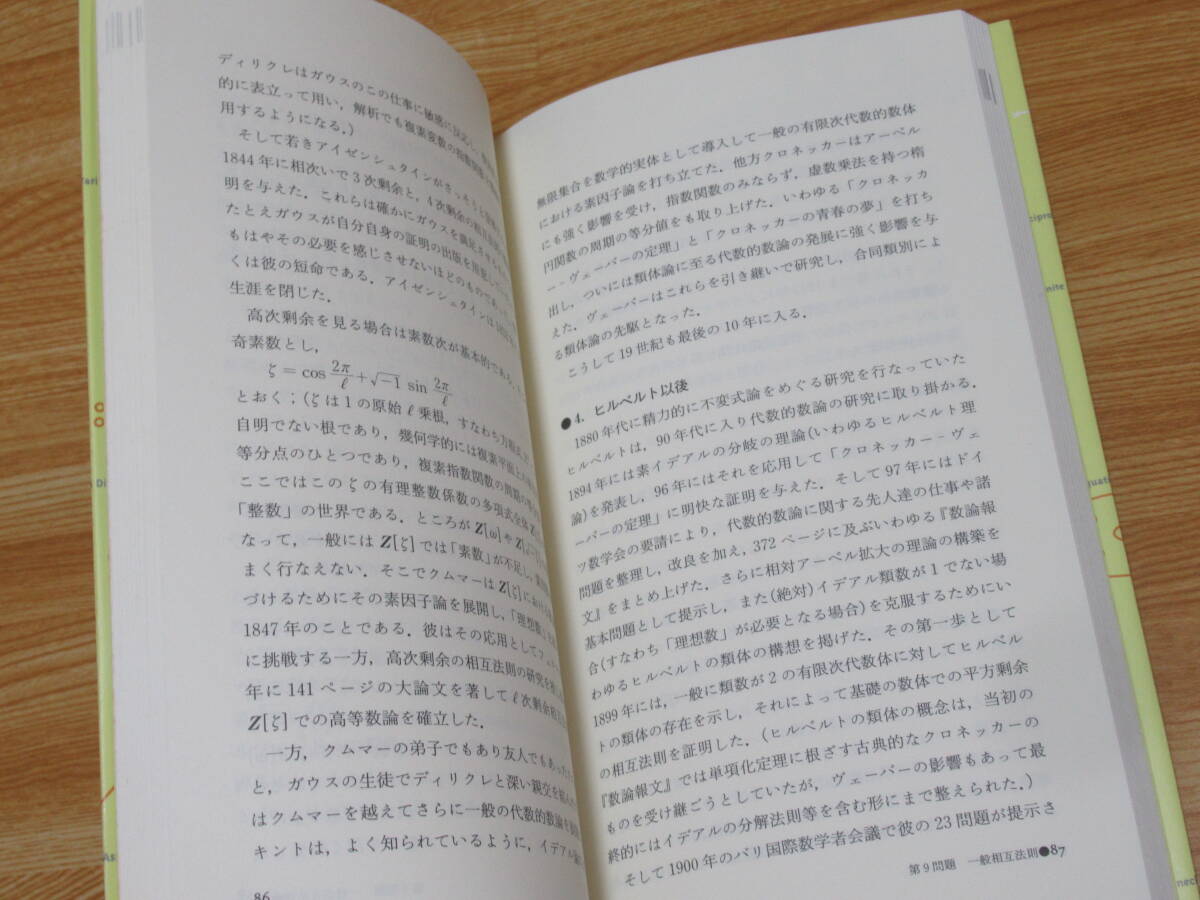 ディリクレはガウスのこの仕事に敏感に反応し,
的に表立って用い, 解析でも複素変数の指数関数
用するようになる.)
そして若きアイゼンシュタインがさっそうと
1844年に相次いで3次剰余と, 4次剰余の相互法則
明を与えた. これらは確かにガウスを満足させる
たとえガウスが自分自身の証明の出版を用意してい
もはやその必要を感じさせないほどのものであ
くは彼の短命である. アイゼンシュタインは
生涯を閉じた.
高次剰余を見る場合は素数次が基本的であろ
奇素数とし,
ζ = cos 2π/ℓ + √−1 sin 2π/ℓ
とおく; (ζ は1の原始 ℓ 乗根, すなわち方程式
自明でない根であり, 幾何学的には複素平面
等分点のひとつであり, 複素指数関数の周期の等
ここではこの ζ の有理整数係数の多項式全体
「整数」の世界である. ところが Z[ω] や Z[
なって, 一般には Z[ζ] では「素数」が不足し,
まく行なえない. そこでクムマーは Z[ζ] における
づけるためにその素因子論を展開し,「理想数」
1847年のことである. 彼はその応用としてフェル
に挑戦する一方, 高次剰余の相互法則の研究を
年に141ページの大論文を著して ℓ 次剰余相互
Z[ζ] での高等数論を確立した.
一方, クムマーの弟子でもあり友人でもあった
と, ガウスの生徒でディリクレと深い親交を結んだ
はクムマーを越えてさらに一般の代数的数論を
キントは, よく知られているように, イデアル
86
無限集合を数学的実体として導入して一般の有限次代数的数体
における素因子論を打ち立てた. 他方クロネッカーはアーベル
にも強く影響を受け, 指数関数のみならず, 虚数乗法を持つ楕
円関数の周期の等分値をも取り上げた. いわゆる「クロネッカ
ー-ヴェーバーの定理」と「クロネッカーの青春の夢」を打ち
出し, ついには類体論に至る代数的数論の発展に強く影響を与
えた. ヴェーバーはこれらを引き継いで研究し, 合同類別によ
る類体論の先駆となった.
こうして19世紀も最後の10年に入る.
●4. ヒルベルト以後
1880年代に精力的に不変式論をめぐる研究を行なっていた
ヒルベルトは, 90年代に入り代数的数論の研究に取り掛かる.
1894年には素イデアルの分岐の理論(いわゆるヒルベルト理
論)を発表し, 96年にはそれを応用して「クロネッカー-ヴェ
ーバーの定理」に明快な証明を与えた. そして97年にはドイ
ツ数学会の要請により, 代数的数論に関する先人達の仕事や諸
問題を整理し, 改良を加え, 372ページに及ぶいわゆる『数論報
文』をまとめ上げた. さらに相対アーベル拡大の理論の構築を
基本問題として提示し, また(絶対)イデアル類数が1でない場
合(すなわち「理想数」が必要となる場合)を克服するためにい
わゆるヒルベルトの類体の構想を掲げた. その第一歩として
1899年には, 一般に類数が2の有限次代数体に対してヒルベル
トの類体の存在を示し, それによって基礎の数体での平方剰余
の相互法則を証明した. (ヒルベルトの類体の概念は, 当初の
『数論報文』では単項化定理に根ざす古典的なクロネッカーの
ものを受け継ごうとしていたが, ヴェーバーの影響もあって最
終的にはイデアルの分解法則等を含む形にまで整えられた.)
そして1900年のパリ国際数学者会議で彼の23問題が提示さ
第9問題 一般相互法則●87